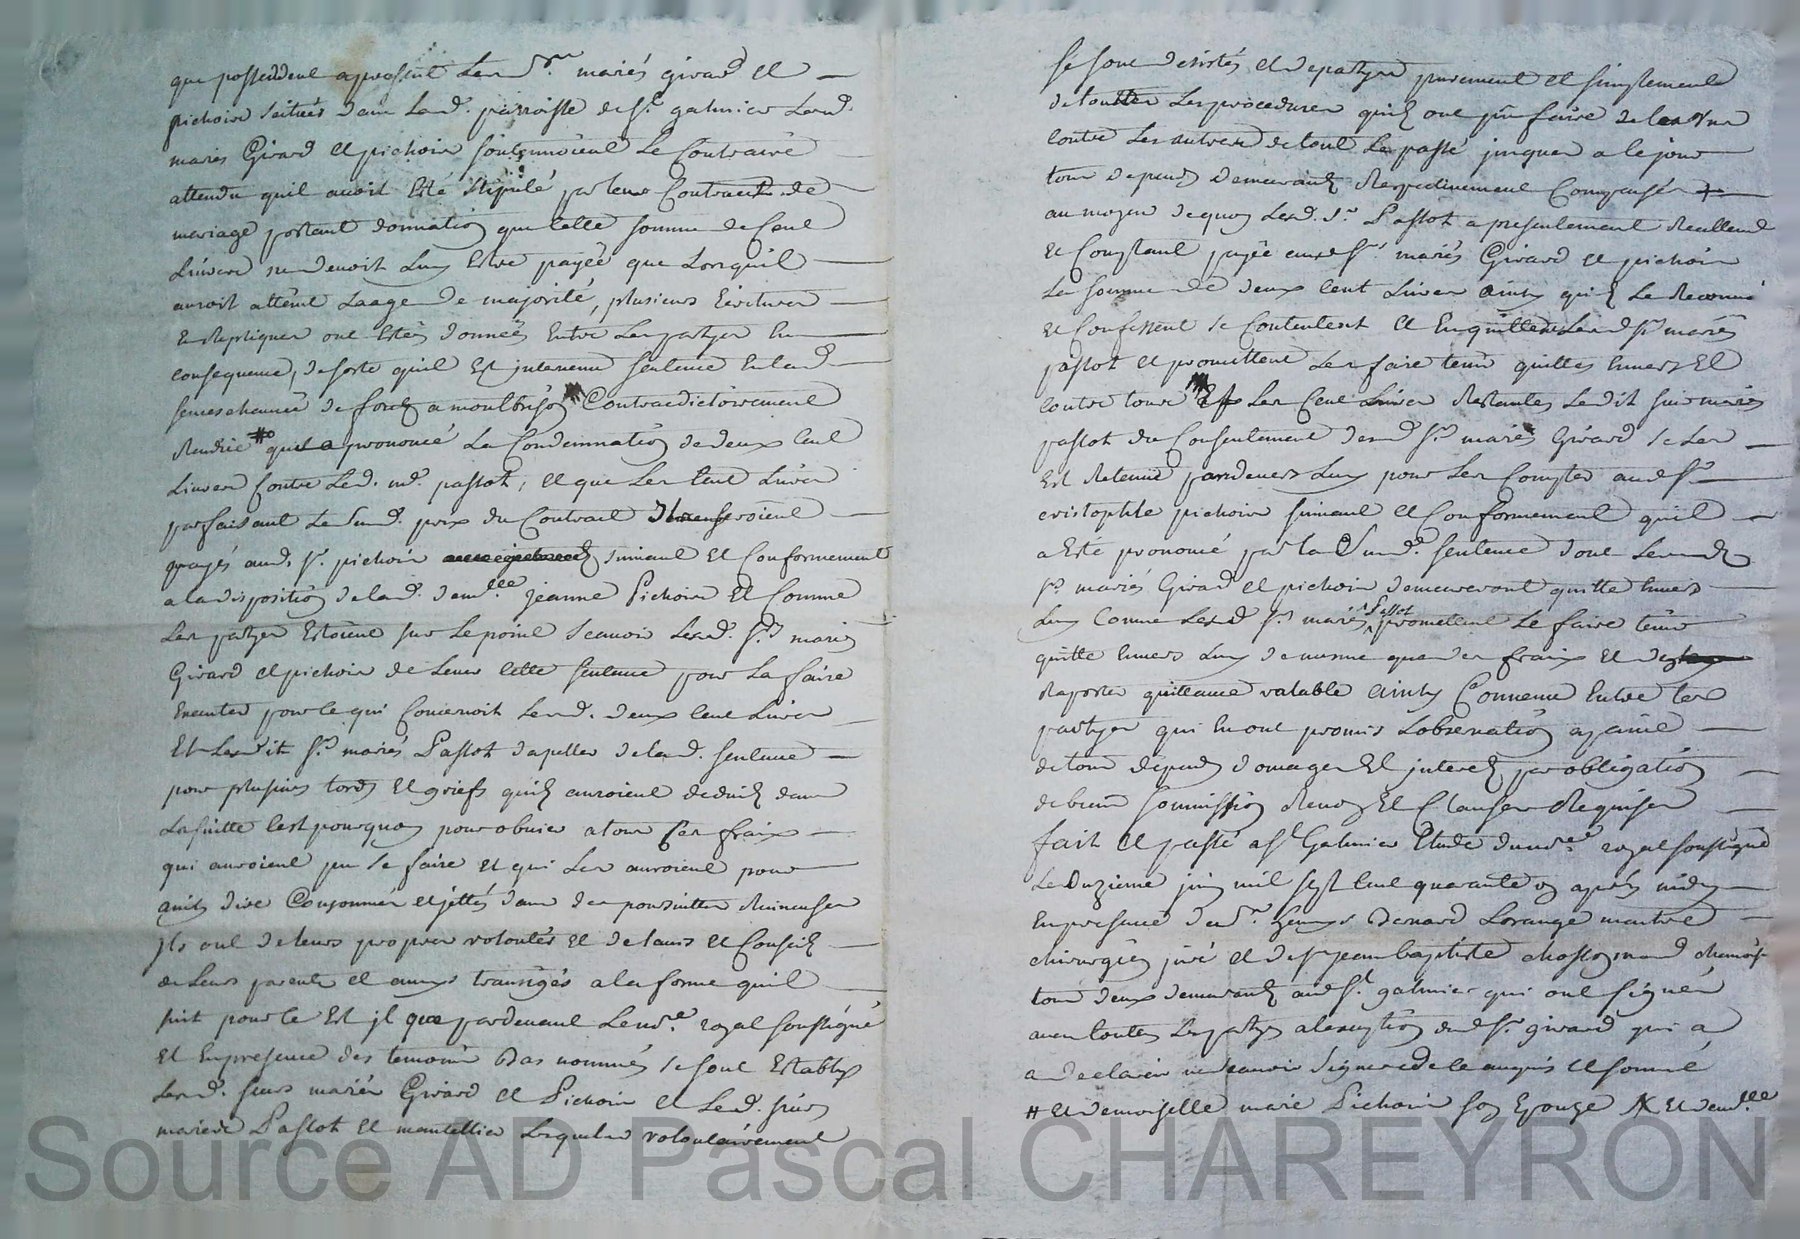 que possedent apresent Lesd. srs mariés girard et
pichoin scitués dans Lad. parroisse de St. galmier Lesd.
mariés Girard et pichoin soutenoient Le Contraire
attendu quil avoit esté stipulé par leur Contract de
mariage portant donnation que cette somme de Cent
Livres ne devoit Luy Estre payée que Lorsquil
auroit atteint Laage de majorité, plusieurs Ecritures
Et Repliques ont Estés données Entre Les partyes En
consequence, de sorte quil Est intervenu sentence En lad.
senechaussée de forest a montbrison Contradictoirement
Rendue # qui a prononcé La Condemnation de deux Cent
Livres Contre Led. md. passot, et que Les Cent Livres
parfaisant Le susd. prix du Contrait seroient
payés aud. sr. pichoin suivant et Conformement
a la disposition de lad. demlle. jeanne Pichoin Et Comme
Les partyes Estoient sur Le point scavoir Lesd. srs mariés
Girard et pichoin de Lever cette sentence pour La faire
Executer pour ce qui Concernoit Lesd. deux Cent Livres
Et Lesdit srs mariés Passot dapeller de lad. sentence
pour plusieurs torts Et griefs quils auroient deduits dans
La suitte cest pourquoy pour obvier a tous ces fraix
qui auroient peu se faire et qui Les auroient pour
ainsy dire Consommés et jettés dans des poursuittes Ruineuses
Ils ont de leurs propres volontés et de lavis et Conseil
de Leurs parents et amys transigés a la forme quil
suit pour ce Est il que pardevant Le nre. royal soussigné
Et En presence des temoins Bas nommés se sont Establys
Lesd. sieurs mariés Girard et Pichoin et Lesd. sieurs
mariés Passot et mantellier Lesquels volontairement
se sont desistés et departys purement et simplement
de touttes Les procedures quils ont pu faire de les Uns
contre Les autres de tout Le passé jusques a ce jour
tous depens demeurants Respectivement Compensés +
au moyen de quoy Led. sr Passot a presentement Reellement
et Comptant payée auxd. srs mariés Girard et pichoin
La somme de deux cent Livres ainsy quils Le Reconnu
et Confessent se Contentent et En quittent Lesd. srs mariés
passot et promettent Les faire tenir quittes Envers Et
contre tous Et Les Cent Livres Restantes Lesdit sieurs mariés
passot du Consentement desd. srs mariés Girard se Les
Est Retenue pardevers Luy pour Les Compter aud. sr
cristophle pichoin suivant et Conformement quil
a Esté prononcé par la susd. sentence dont Lesd.
srs mariés Girard et pichoin demeureront quitte Envers
Luy Comme Lesd. srs mariés Passot promettent Le faire tenir
quitte Envers Luy de mesme que des fraix et den
Raporter quittance valable ainsy Convenu Entre les
partyes qui En ont promis Lobservation a peine
de tous depens domages Et interets par obligation
de biens sommission Renon Et Clauses Requises
fait et passé a St Galmier Etude dud. nre. royal soussigné
Le Onzieme juin mil sept Cent quarante apres midy
En presence de sr Bonard Lorange maitre
chirurgien juré et de sr jean baptiste chosson
tous deux demeurants aud. St. galmier qui ont signés
avec touttes Les partyes a lexception dud. sr. girard qui a
a declaré ne scavoir signer de ce enquis et sommé
# et demoiselle marie Pichoin son Epouze X Et demlle
Source AD Pascal CHAREYRON